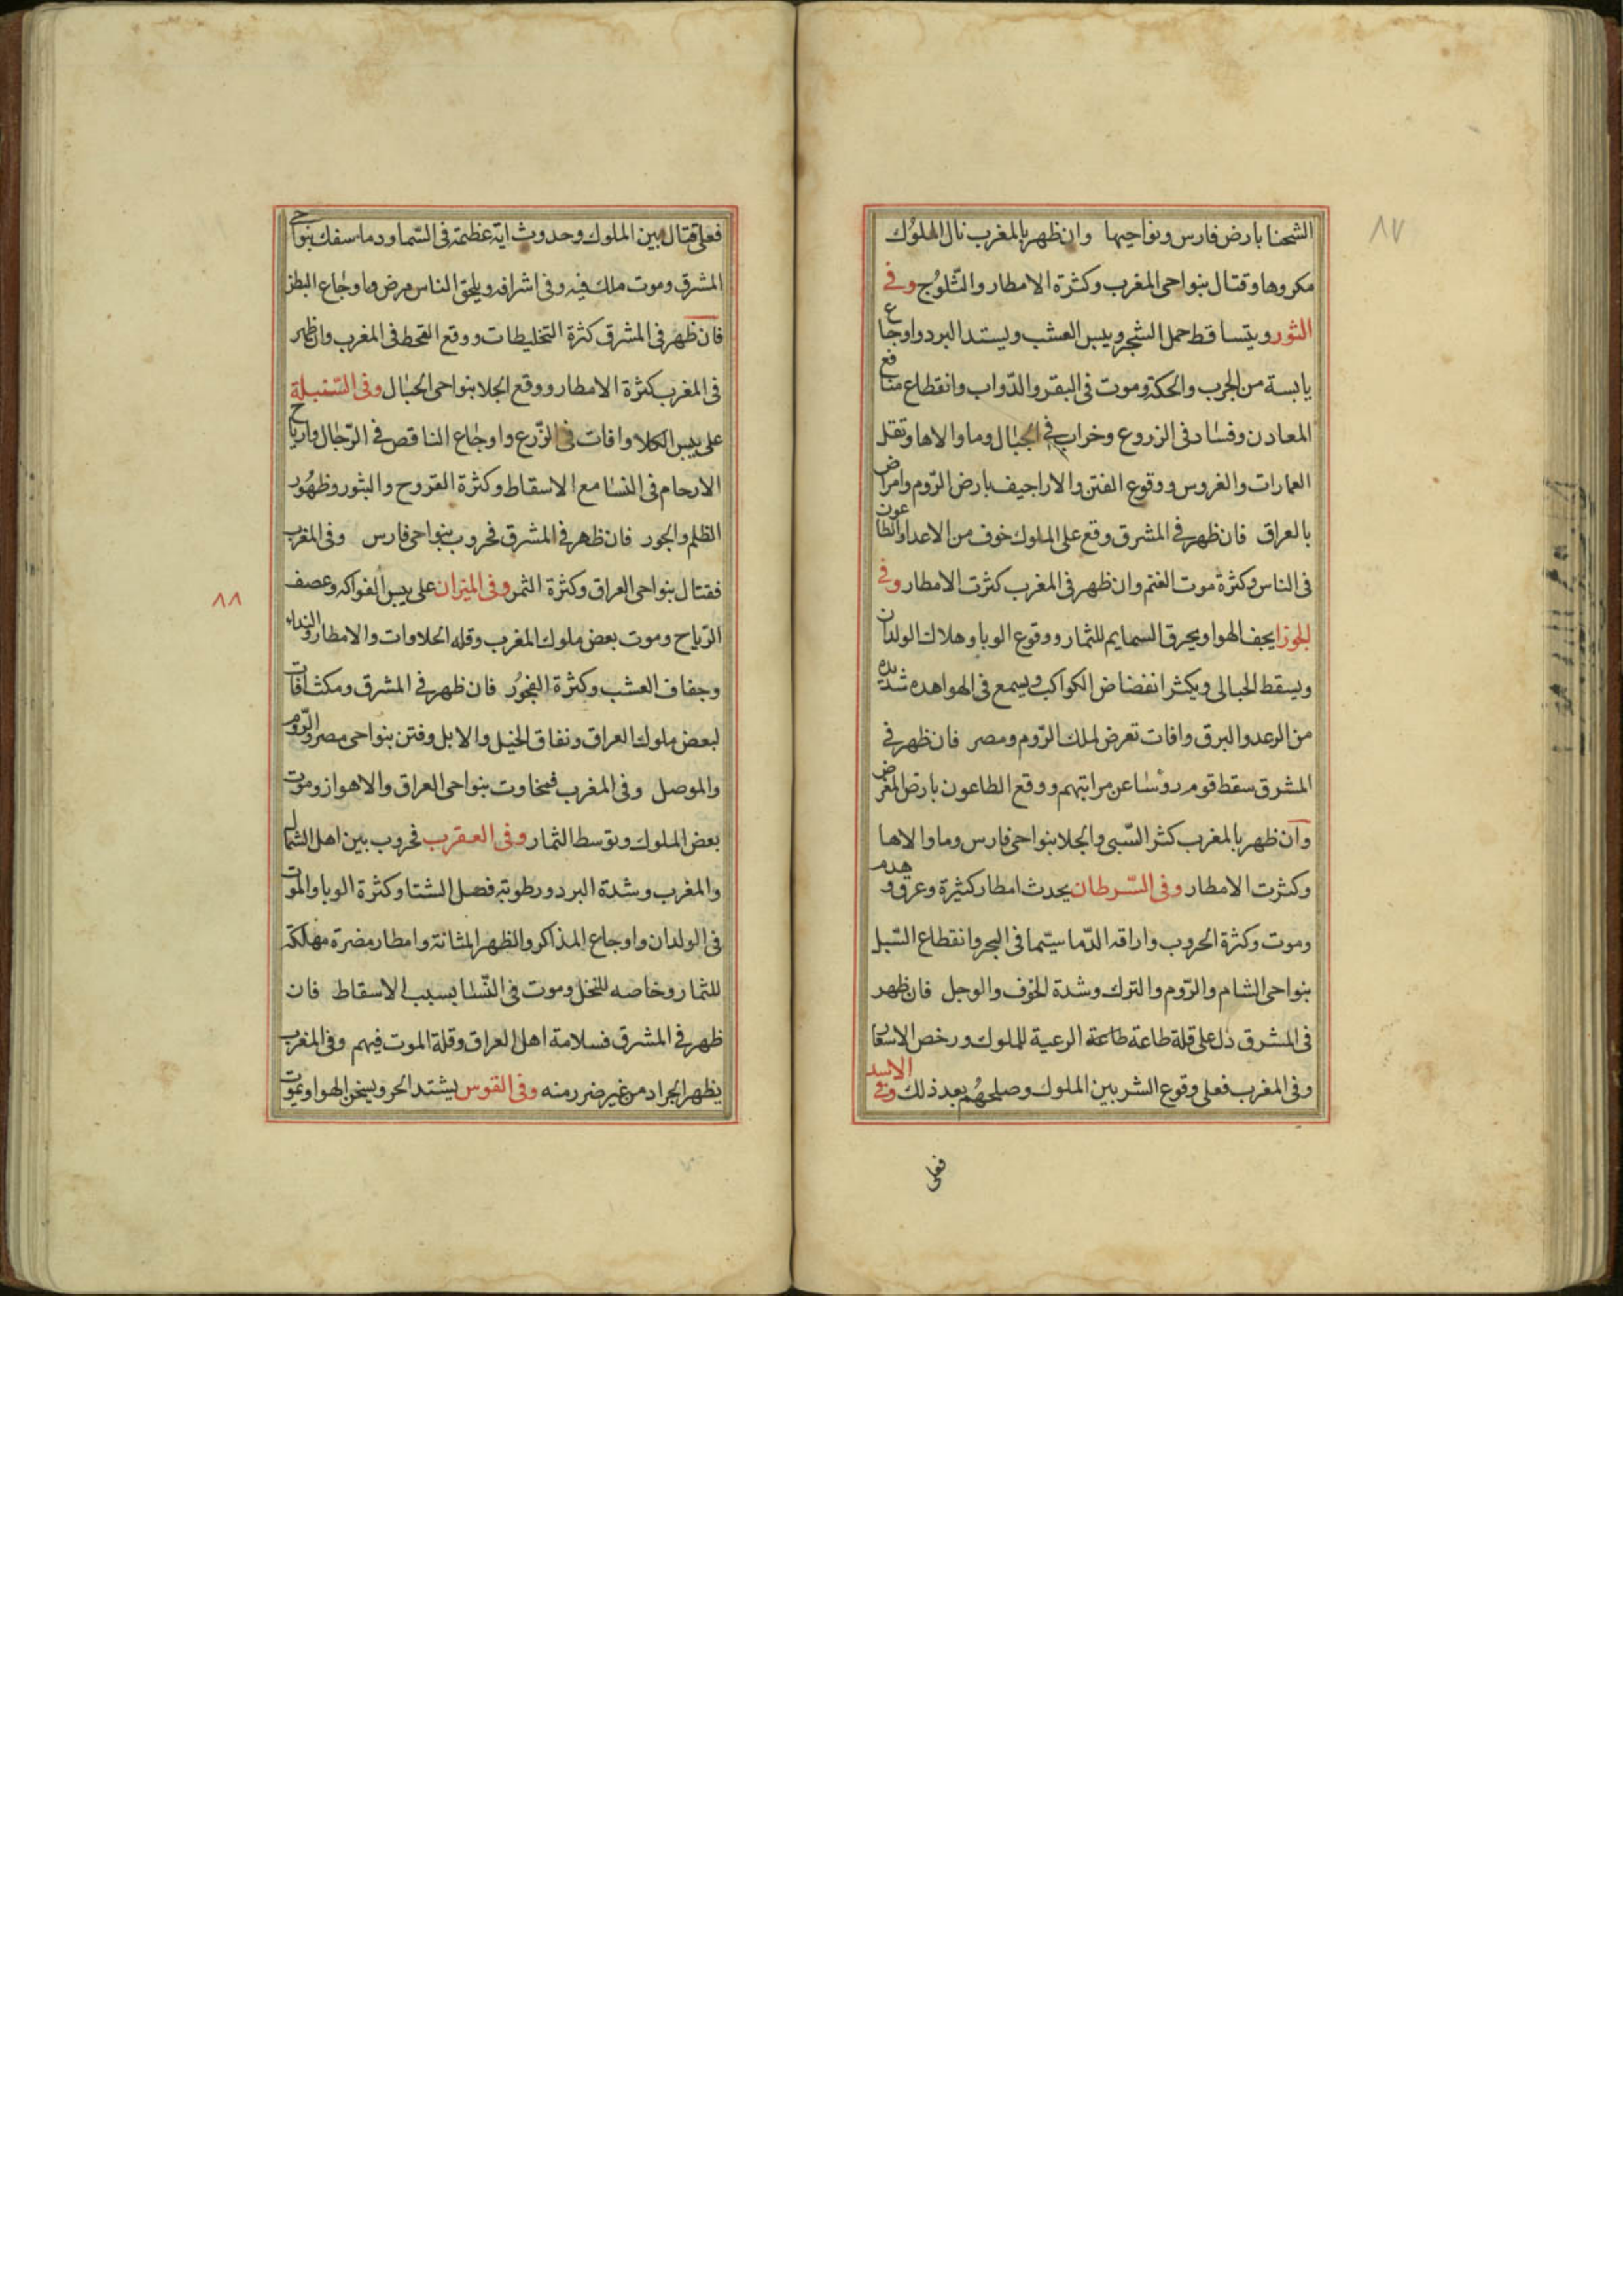 ٨٧
الشحنا بارض فارس ونواحيها وان ظهر بالمغرب نال الملوك
مكروها وقتال بنواحى المغرب وكثرة الامطار والثلوج وفى
الثور ويتساقط حمل الشجر ويبس العشب ويستد البرد واوجاع
يابسة من الجرب والحكة وموت فى البقر والدواب وانقطاع منافع
المعادن وفساد فى الزروع وخراب فى الجبال وما والاها وتقل
العمارات والغروس ووقوع الفتن والاراجيف بارض الروم وامراض
بالعراق فان ظهر فى المشرق وقع على الملوك خوف من الاعدا والطاعون
فى الناس وكثرة موت الغنم وان ظهر فى المغرب كثرت الامطار وفى
الجوزا يجف الهوا ويحرق السمايم للثمار ووقوع الوبا وهلاك الولدان
ويسقط الحبالى ويكثر انفضاض الكواكب ويسمع فى الهوا هده شديده
من الرعد والبرق وافات تعرض لملك الروم ومصر فان ظهر فى
المشرق سقط قوم روسا عن مراتبهم ووقع الطاعون بارض المغرض
وان ظهر بالمغرب كثر السبى والجلا بنواحى فارس وما والاها
وكثرت الامطار وفى السرطان يحدث امطار كثيرة وغرق وهدم
وموت وكثرة الحروب واراقه الدما سيما فى البحر وانقطاع السبل
بنواحى الشام والروم والترك وشدة الخوف والوجل فان ظهر
فى المشرق دل على قلة طاعة طاعة الرعية للملوك ورخص الاسعار
وفى المغرب فعلى وقوع الشر بين الملوك وصلحهم بعد ذلك وفى الاسد
فعلى
فعلى قتال بين الملوك وحدوث اية عظيمة فى السما ودما سفك بنواحى
المشرق وموت ملك فيه وفى اشرافه ويلحق الناس مرض ما وجاع البطن
فان ظهر فى المشرق كثرة التخليطات ووقع القحط فى المغرب وان ظهر
فى المغرب كثرة الامطار ووقع الجلا بنواحى الجبال وفى السنبلة
على يبس الكلا وافات فى الزرع واوجاع الناقص فى الرجال وارياح
الارحام فى النسا مع الاسقاط وكثرة القروح والبثور وظهور
الظلم والجور فان ظهر فى المشرق فحروب بنواحى فارس وفى المغرب
فقتال بنواحى العراق وكثرة الثمن وفى الميزان على يبس الفواكه وعصف
٨٨
الرياح وموت بعض ملوك المغرب وقله الحلاوات والامطار والنداء
وجفاف العشب وكثرة الفجور فان ظهر فى المشرق ومكث افات
لبعض ملوك العراق ونفاق الخيل والابل وفتن بنواحى مصر والروم
والموصل وفى المغرب بنواحى العراق والاهواز وموت
بعض الملوك وتوسط الثمار وفى العقرب فحروب بين اهل الشمال
والمغرب وشدة البرد ورطوبة فصل الشتا وكثرة الوبا والموت
فى الولدان واوجاع المذاكر والظهر المثانة وامطار مضرة مهلكة
للثمار وخاصه للنخل وموت فى النسا بسبب الاسقاط فان
ظهر فى المشرق فسلامة اهل العراق وقلة الموت فيهم وفى المغرب
يظهر الجراد من غير ضرر منه وفى القوس يشتد الحر ويسخن الهوا ويموت